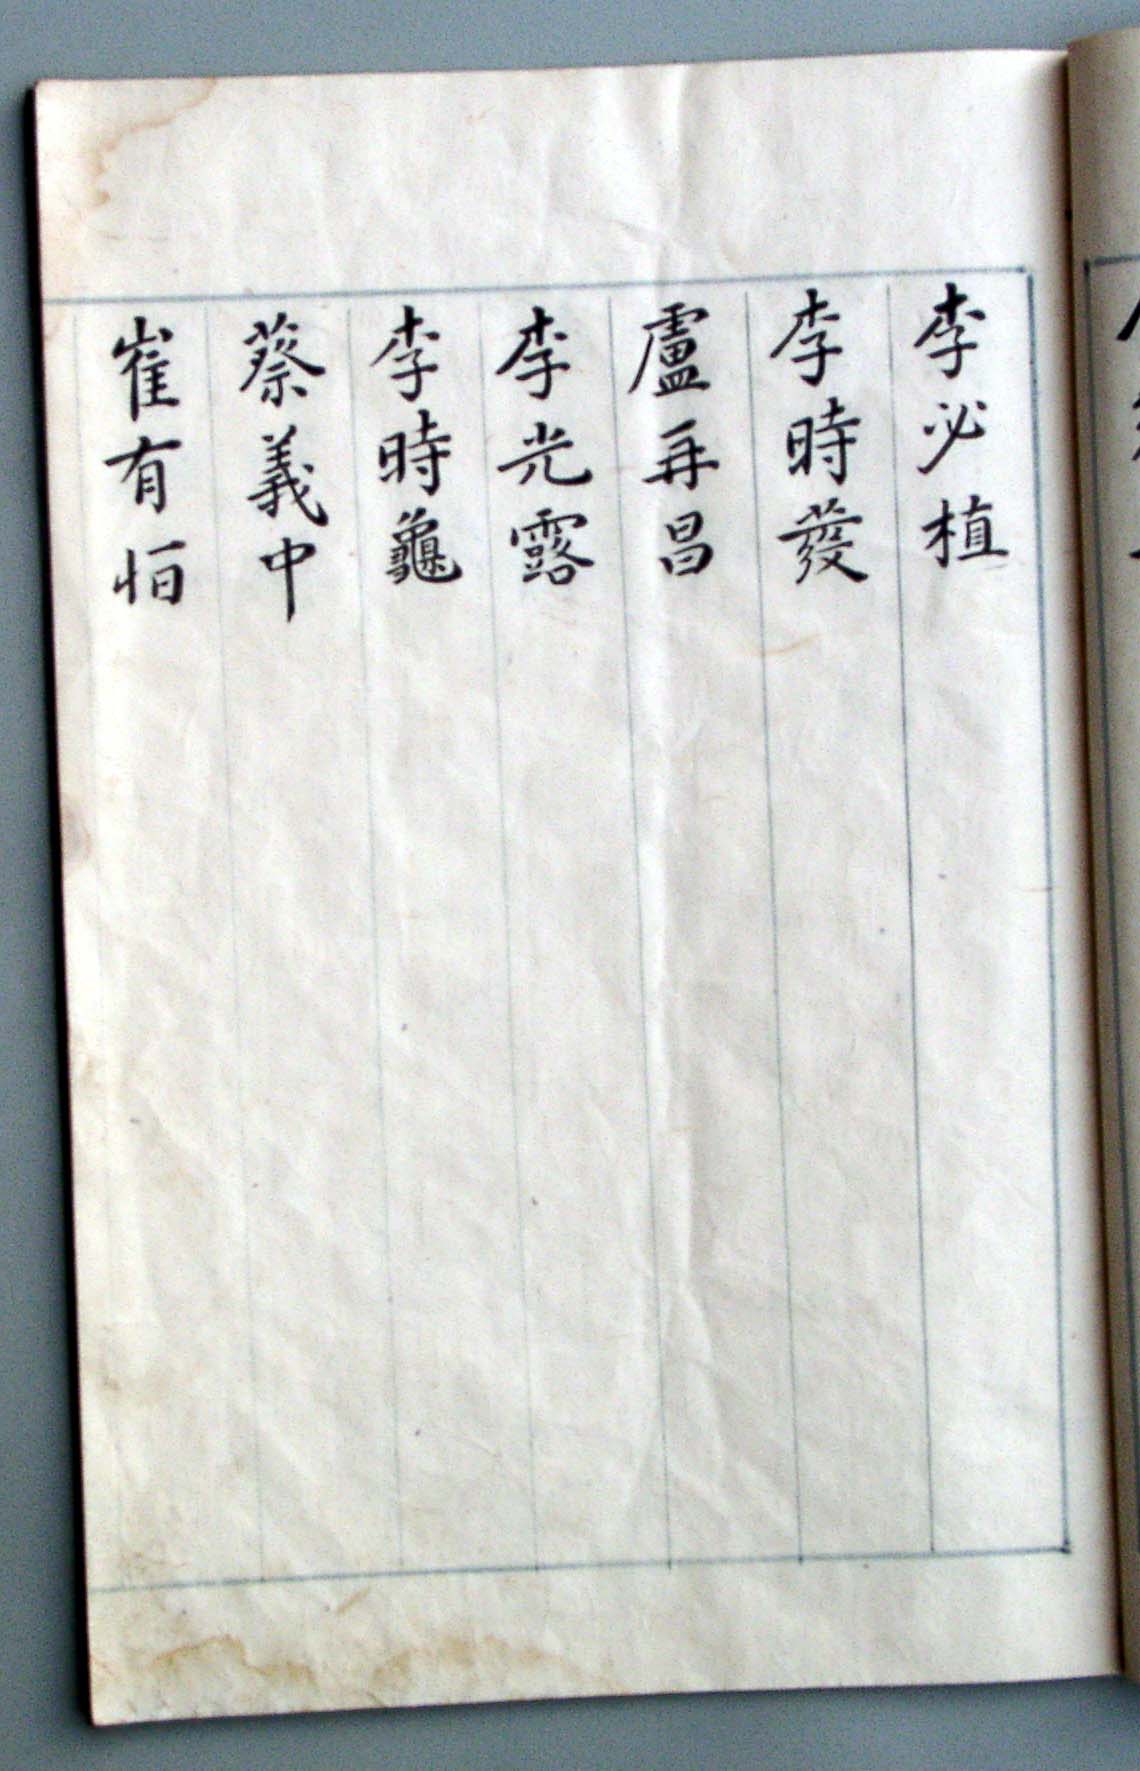 李必植
李時發
盧再昌
李光露
李時龜
蔡義中
崔有恒